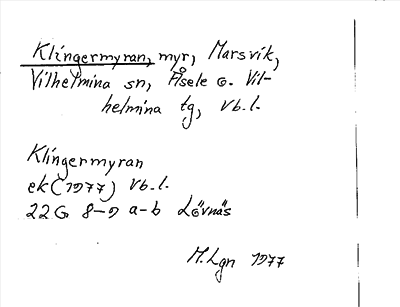 Klingermyran, myr, Marsvik,
Vilhelmina sn, Åsele o. Vil-
helmina tg, Vb.l.
Klingermyran
ek (1977) Vb.l.
22G 8-9 a-b Lövnäs
M.Lgn 1977